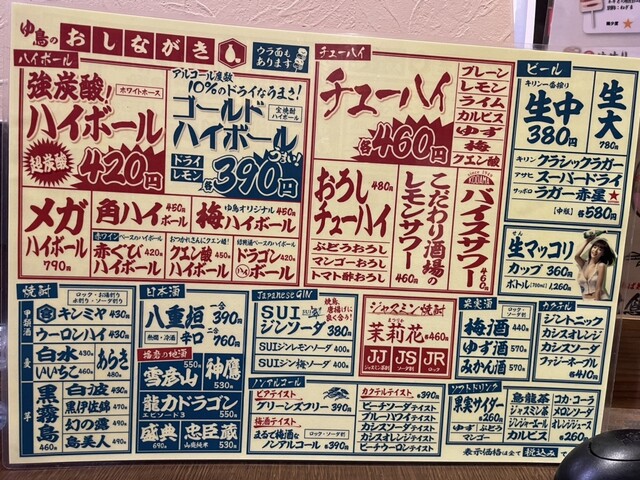 ゆ鳥のおしながき
ウラ面もあります
ハイボール
強炭酸!
ホワイトホース
ハイボール
超炭酸
420円
アルコール度数
10%のドライなうまさ!
ゴールド
宝焼酎ハイボール
ハイボール
ドライ
レモン
各390円
つまい!
メガ
ハイボール
790円
角ハイボール 450円
ゆ鳥オリジナル
梅ハイボール 450円
赤ワインベースのハイボール
赤ぐびハイボール 420円
おつかれさんにクエン酸!
クエン酸ハイボール 450円
紹興酒ベースのハイボール
ドラゴンハイボール 420円
チューハイ
チューハイ
各460円
プレーン
レモン
ライム
カルピス
ゆず
梅
クエン酸
おろしチューハイ
480円
ぶどうおろし
マンゴーおろし
トマト酢おろし
こだわり酒場のレモンサワー
460円
バイスサワー
460円
ビール
キリン一番搾り
生中
380円
生大
780円
キリン クラシックラガー
アサヒ スーパードライ
サッポロ ラガー赤星★
[中瓶] 各580円
生マッコリ
カップ 360円
ボトル(700ml) 1,260円
焼酎
ロック・お湯割り
水割り・ソーダ割り
甲類酒
キンミヤ 430円
ウーロンハイ 430円
麦
白水 430円
いいちこ 460円
あらき 480円
芋
黒霧島 460円
白波 430円
黒伊佐錦 470円
幻の露 430円
島美人 490円
日本酒
八重垣
熱燗・冷酒
辛口
一合 390円
二合 760円
播磨の地酒
雪彦山 550円
神鷹 530円
龍力ドラゴン
エピソード3 550円
盛典 690円
忠臣蔵
山廃純米 530円
Japanese GIN
焼鳥、唐揚げに良く合う!
SUI
ジンソーダ 380円
SUIジンレモンソーダ 400円
SUIジン梅ソーダ 400円
ジャスミン焼酎
茉莉花 各460円
JJ
ジャスミン茶割
JS
ソーダ割
JR
ロック
果実酒
ロック・ソーダ割
梅酒 440円
ゆず酒 570円
みかん酒 570円
カクテル
ジントニック
カシスオレンジ
カシスソーダ
ファジーネーブル
各410円
ノンアルコール
ビアテイスト
グリーンズフリー 390円
梅酒テイスト
ロック・ソーダ割
まるで梅酒なノンアルコール 各390円
カクテルテイスト 各390円
ピーチソーダテイスト
ブルーハワイテイスト
カシスソーダテイスト
カシスオレンジテイスト
ピーチウーロンテイスト
ソフトドリンク
果実サイダー
各260円
ゆず ぶどう
マンゴー
烏龍茶
ジャスミン茶
ジンジャーエール
カルピス
コカ・コーラ
メロンソーダ
オレンジジュース
各260円
表示価格は全て税込みで